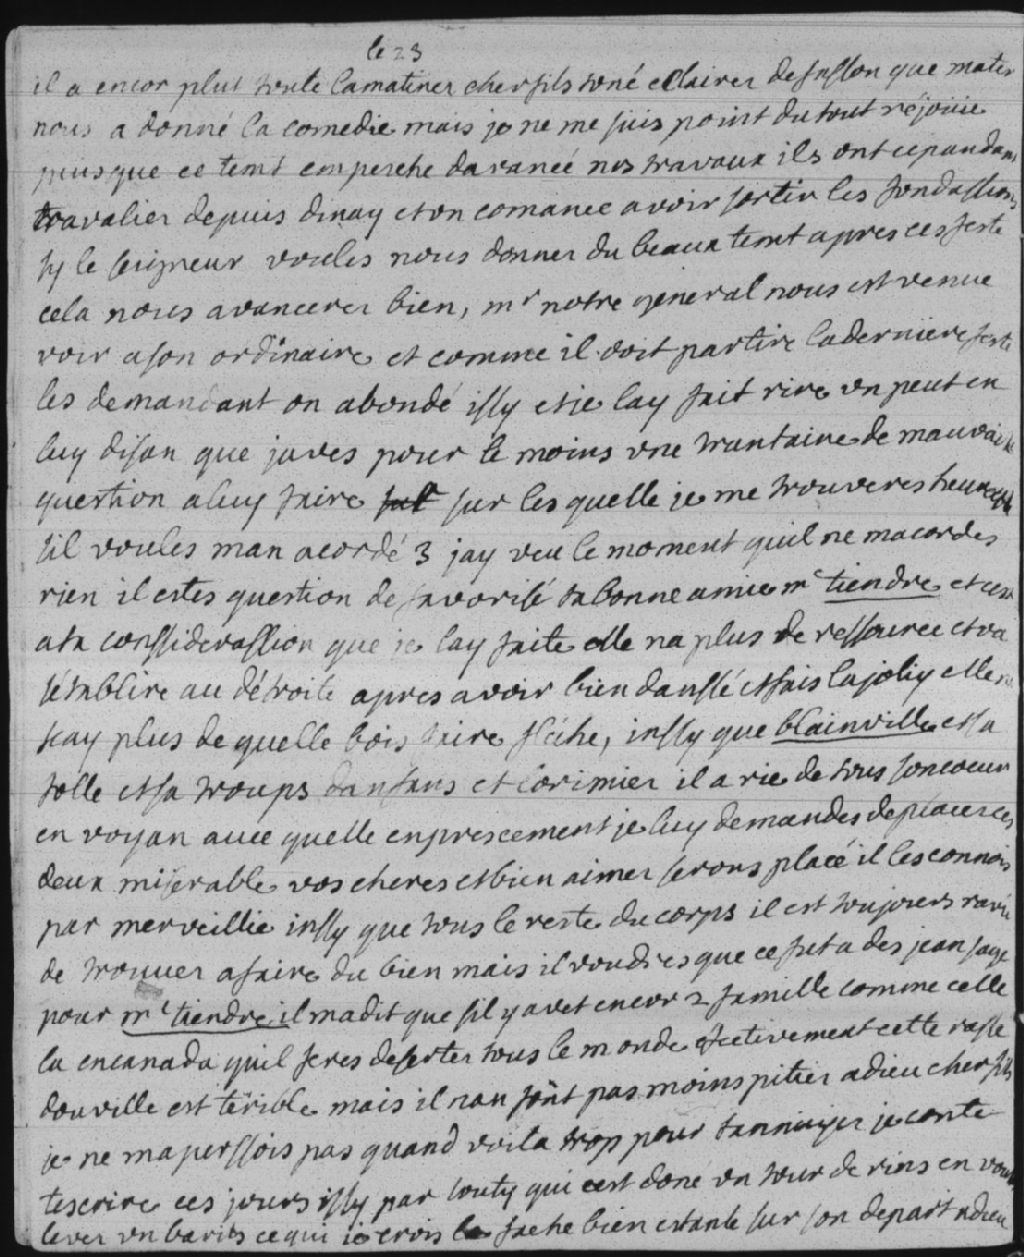 le 23
il a encor plut toute lamatinee cherfils toné eclairer desusson que mater
nous a donné la comedie mais je ne me suis point du tout rejouie
puis que ce temt empesche davancé nos travaux ils ont cepandant
travalier depuis dinay et on comance avoir sortir les fondassions
sy le seigneur voules nous donner du beaux temt apres ces feste
cela nous avancerer bien, mr notre general nous est venue
voir a son ordinaire et comme il doit partire la derniere feste
les demandant on abondé issy et je lay fait rire un peut en
luy disan que javes pour le moins une trantaine de mauvaise
question a luy faire sur les quelle je me trouveres heureuse
sil voules man acordé 3 jay veu le moment quil ne macordes
rien il estes question de favorisé ta bonne amie me tiendre et ces
a ta conssiderassion que je lay faite elle na plus de ressource et va
sétablire au détroite apres avoir bien danssé et fais lajoliy elle ne
scay plus de quelle bois faire fléche, inssy que blainville et sa
folle et sa troups danfans et lorimier il a rie de tous son coeur
en voyan avec quelle enprescement je luy demandes de placer ces
deux miserable vos cheres et bien aimer serons placé il les connois
par merveillie inssy que tous le reste du corps il est toujours ravie
de trouver afaire du bien mais il voudres que ce fut a des jean sage
pour me tiendre il madit que sil y avet encor 2 famille comme celle
la encanada quil feres deserter tous le monde efectivement cette rasse
douville est térible mais il nan font pas moins pitier adieu cher fils
je ne maperssois pas quand voila trop pour tannuiyer je conte
tescrire ces jours issy par louty qui cest doné un tour de rins en voulant
lever un baris ce qui je crois le fache bien estante sur son depart adieu